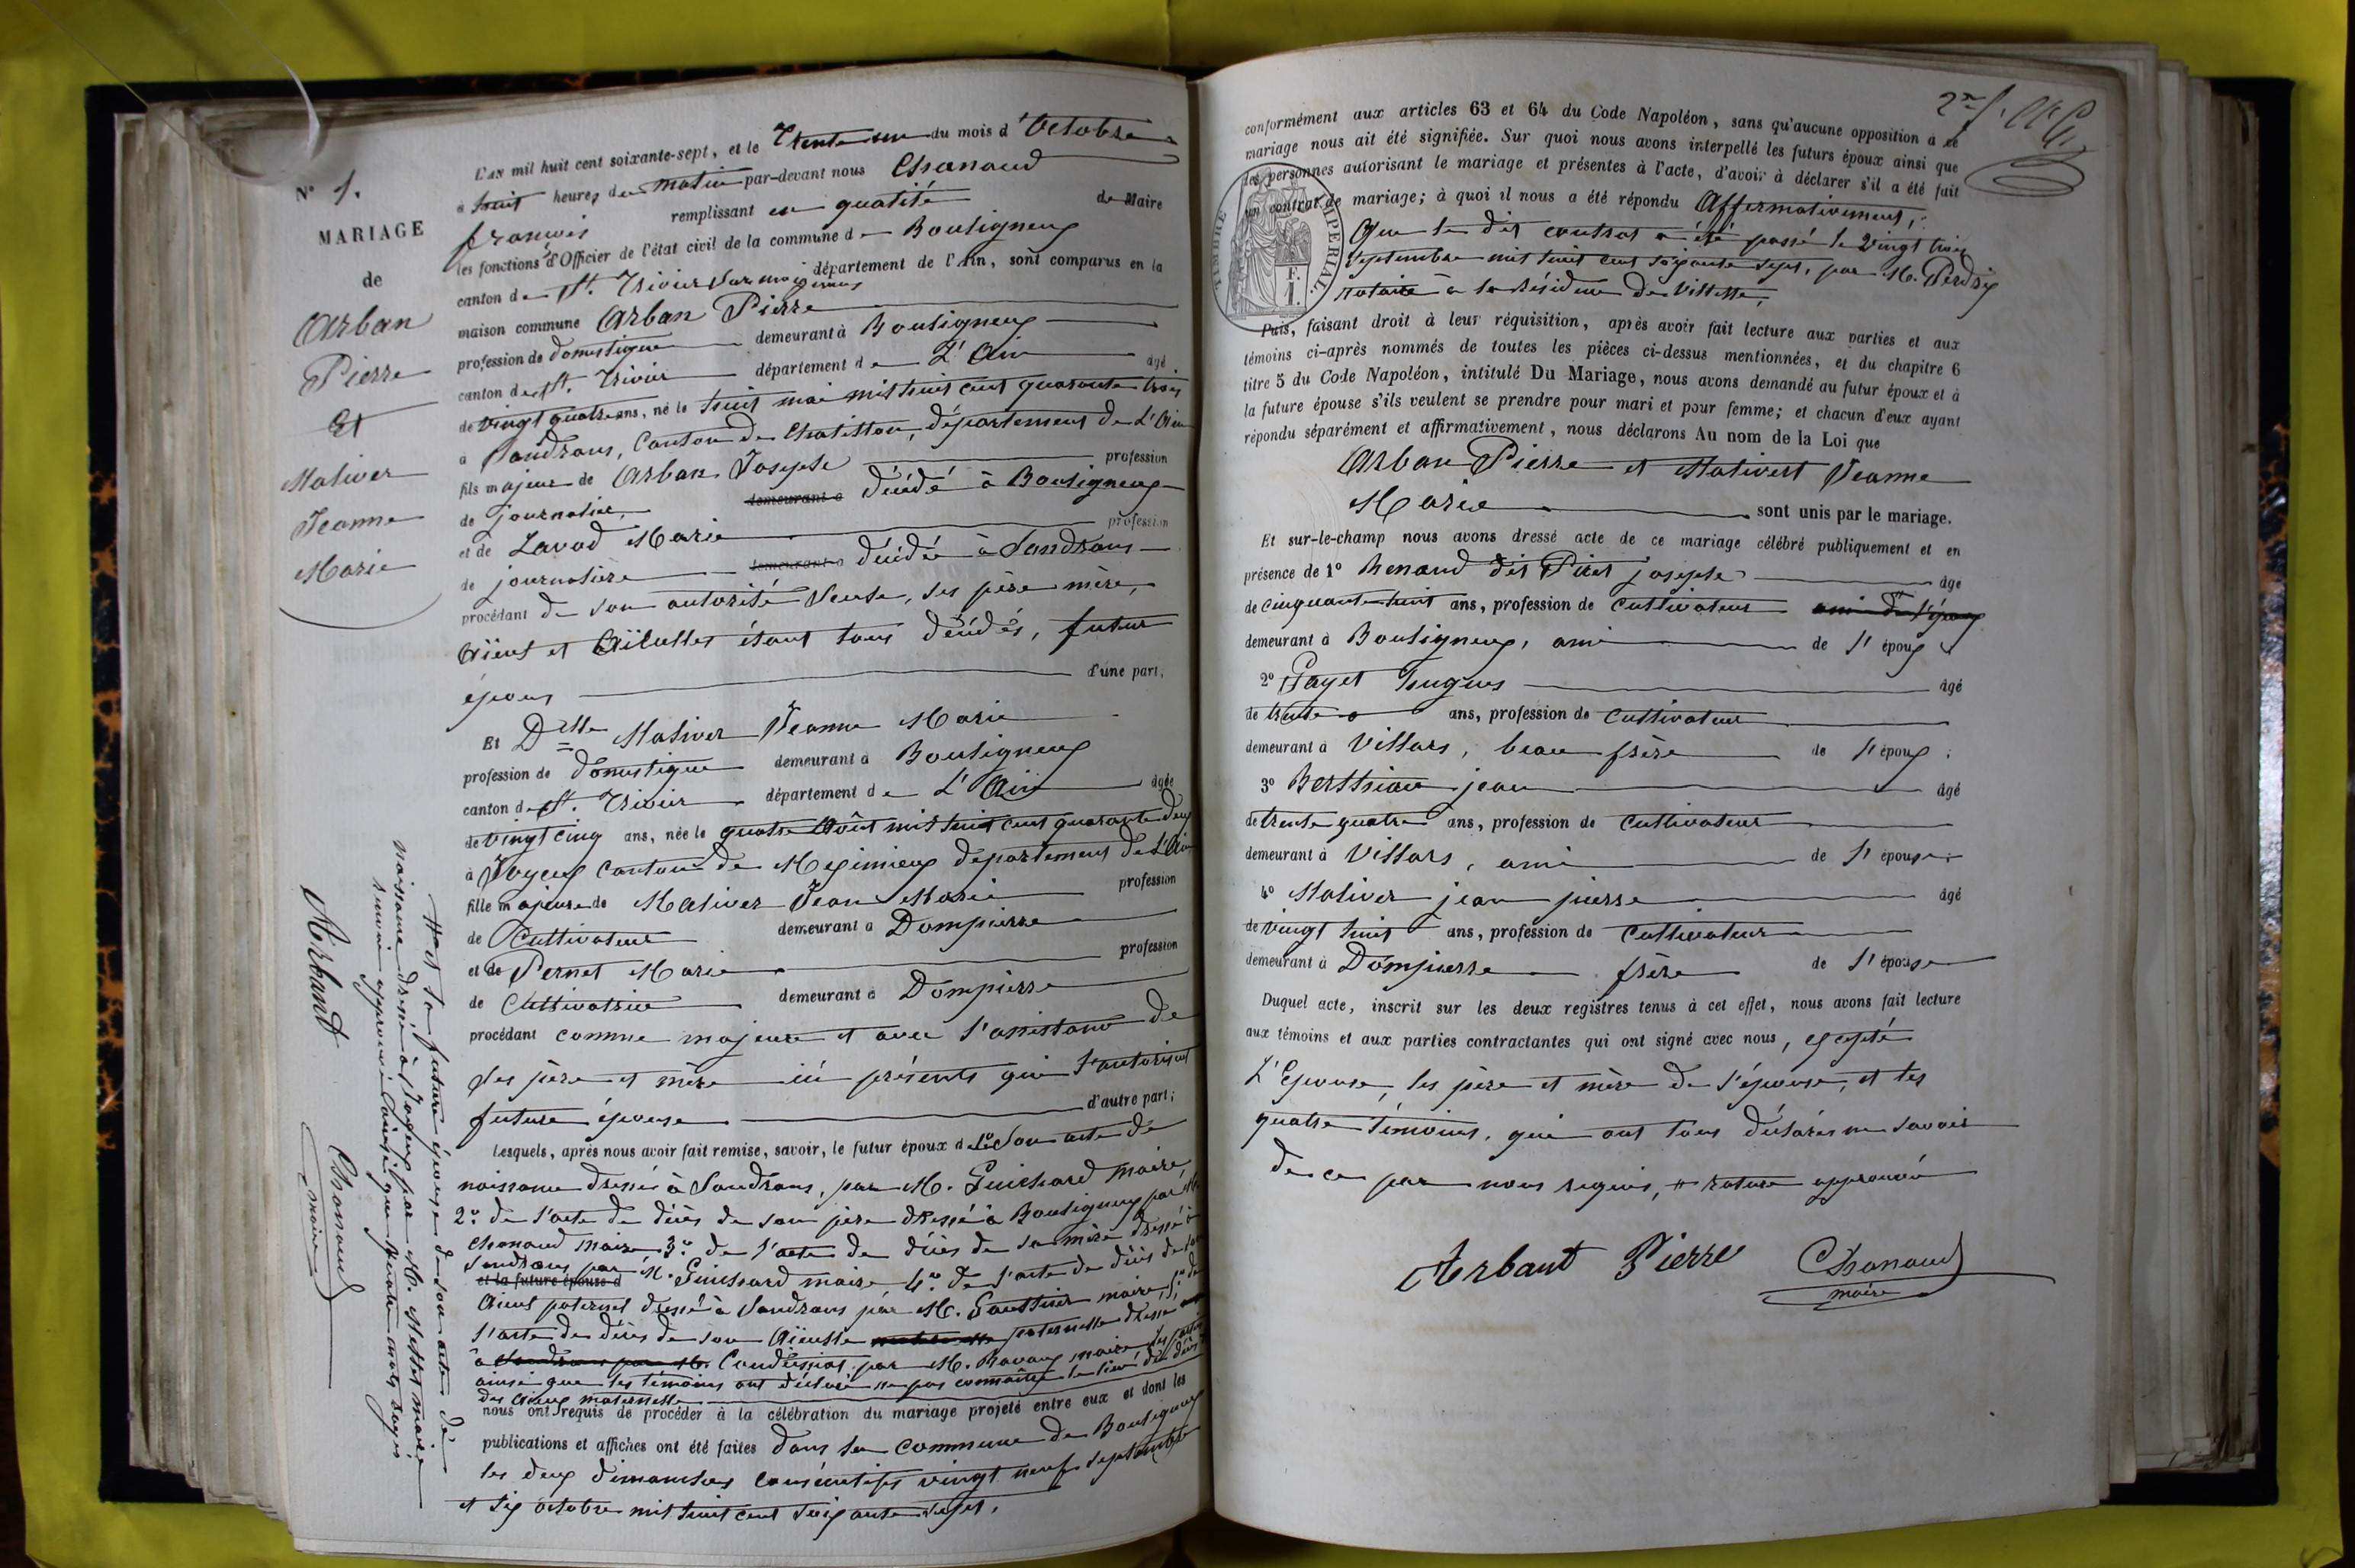 N° 1.
MARIAGE
de
Arban
Pierre
Et
Maliver
Jeanne
Marie
L'an mil huit cent soixante-sept, et le Trente un du mois d'Octobre
à huit heures du matin par-devant nous Chanaud
françois remplissant en qualité de Maire
les fonctions d'Officier de l'état civil de la commune de Bouligneux
canton de St. Trivier sur moignans département de l'Ain, sont comparus en la
maison commune Arban Pierre
profession de domestique demeurant à Bouligneux
canton de St. Trivier département de L'Ain âgé
de vingt quatre ans, né le huit mai mil huit cent quarante trois
à Sandrans, Canton de Chatillon, département de L'Ain
fils majeur de Arban Joseph profession
de journalier, demeurant à décédé à Bouligneux
et de Lavod Marie profession
de journalière demeurant à décédée à Sandrans
procédant de son autorité seule, ses père mère,
Aïeuls et Aïeulles étant tous décédés, futur
époux d'une part,
Et Dlle Maliver Jeanne Marie
profession de domestique demeurant à Bouligneux
canton de St. Trivier département de L'Ain âgée
de vingt cinq ans, née le quatre Août mil huit cent quarante deux
à Joyeux canton de Meximieux département de L'Ain
fille majeure de Maliver Jean Marie profession
de Cultivateur demeurant à Dompierre
et de Pernet Marie profession
de Cultivatrice demeurant à Dompierre
procédant comme majeure et avec l'assistance de
ses père et mère ici présents qui l'autorisent
future épouse d'autre part;
Lesquels, après nous avoir fait remise, savoir, le futur époux de 1° Son acte de
naissance dressé à Sandrans, par M. Guichard maire,
2° de l'acte de décès de son père dressé à Bouligneux par M.
Chanaud maire 3° de l'acte de décès de sa mère dressé à
Sandrans par M. Guichard maire 4° de l'acte de décès de son
et la future épouse d
Aïeul paternel dressé à Sandrans par M. Gauthier maire, 5° de
l'acte de décès de son Aïeulle paternelle dressé
à Condeissiat par M. Ravoux maire, les parties
ainsi que les témoins ont déclaré ne pas connaître le lieu du décès
des aïeux maternelle
nous ont requis de procéder à la célébration du mariage projeté entre eux et dont les
publications et affiches ont été faites dans la commune de Bouligneux
les deux dimanches consécutifs vingt neuf septembre
et six octobre mil huit cent soixante sept.
et la future épouse de son acte de
naissance dressé à Joyeux par M. maire
Arbant Chanaud
maire
2me f.
conformément aux articles 63 et 64 du Code Napoléon, sans qu'aucune opposition à ce
mariage nous ait été signifiée. Sur quoi nous avons interpellé les futurs époux ainsi que
les personnes autorisant le mariage et présentes à l'acte, d'avoir à déclarer s'il a été fait
un contrat de mariage; à quoi il nous a été répondu Affirmativement,
Que le dit contrat a été passé le vingt trois
septembre mil huit cent soixante sept, par M. Perdrix
notaire à la Résidence de Villette,
TIMBRE IMPERIAL.
F.
1.
Puis, faisant droit à leur réquisition, après avoir fait lecture aux parties et aux
témoins ci-après nommés de toutes les pièces ci-dessus mentionnées, et du chapitre 6
titre 5 du Code Napoléon, intitulé Du Mariage, nous avons demandé au futur époux et à
la future épouse s'ils veulent se prendre pour mari et pour femme; et chacun d'eux ayant
répondu séparément et affirmativement, nous déclarons Au nom de la Loi que
Arban Pierre et Malivert Jeanne
Marie sont unis par le mariage.
Et sur-le-champ nous avons dressé acte de ce mariage célébré publiquement et en
présence de 1° Renaud dit Pitet joseph âgé
de cinquante huit ans, profession de cultivateur ami de l'époux
demeurant à Bouligneux, ami de l'époux
2° Payet hugues âgé
de trente ans, profession de cultivateur
demeurant à Villars, beau frère de l'époux.
3° Berthier jean âgé
de trente quatre ans, profession de Cultivateur
demeurant à Villars, ami de l'épouse
4° Maliver jean pierre âgé
de vingt huit ans, profession de Cultivateur
demeurant à Dompierre frère de l'épouse
Duquel acte, inscrit sur les deux registres tenus à cet effet, nous avons fait lecture
aux témoins et aux parties contractantes qui ont signé avec nous, excepté
L'Epouse, les père et mère de l'épouse, et les
quatre témoins, qui ont tous déclarés ne savoir
de ce par nous requis, # rature approuvée
Arbant Pierre Chanaud
maire